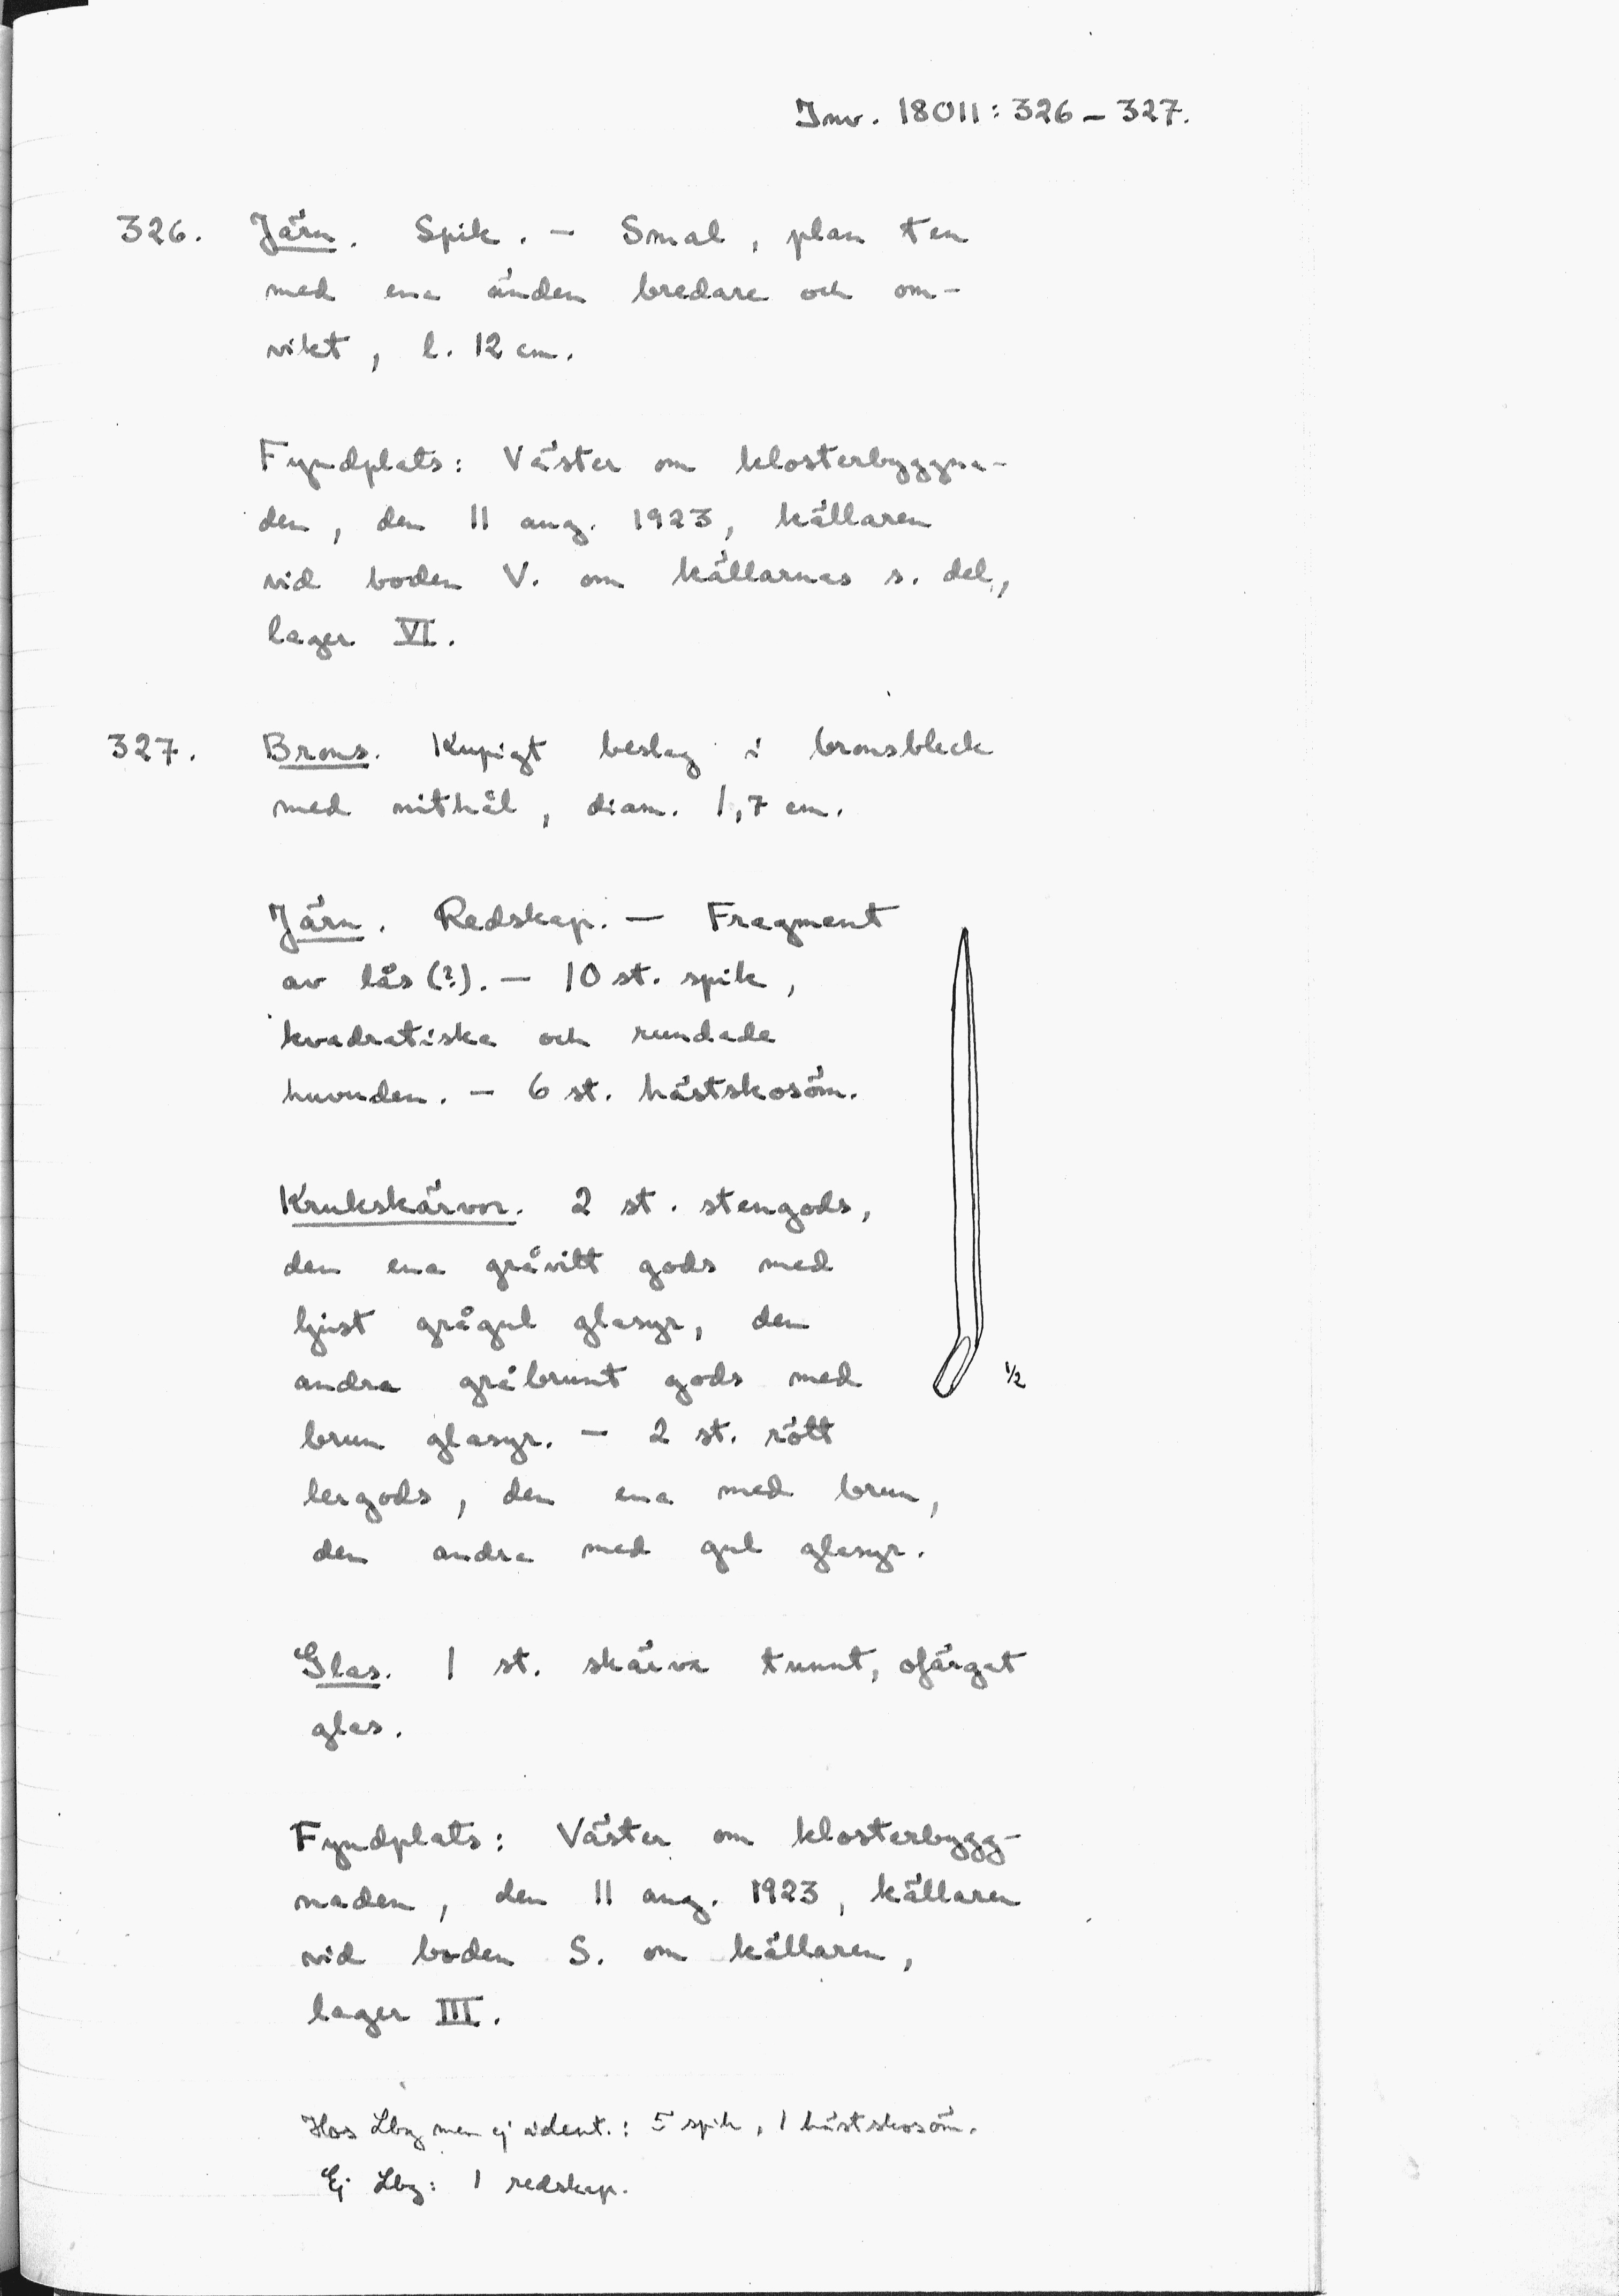 Inv. 18011:326-327.
326. Järn. Spik. - Smal, plan ten
med ena änden bredare och om-
vikt, l. 12 cm.
Fyndplats: Väster om klosterbyggna-
den, den 11 aug. 1923, källaren
vid boden V. om källarnas s. del,
lager VI.
327. Brons. Kupigt beslag i bronsbleck
med nithål, diam. 1,7 cm.
Järn. Redskap. - Fragment
av lås (?). - 10 st. spik,
kvadratiska och rundade
huvuden. - 6 st. hästskosöm.
Krukskärvor. 2 st. stengods,
den ena gråvitt gods med
ljust grågul glasyr, den
andra gråbrunt gods med
brun glasyr. - 2 st. rött
lergods, den ena med brun,
den andra med gul glasyr.
1/2
Glas. 1 st. skärva tunnt, ofärgat
glas.
Fyndplats: Väster om klosterbygg-
naden, den 11 aug. 1923, källaren
vid boden S. om källaren,
lager III.
Hos Lbg men ej ident.: 5 spik, 1 hästskosöm.
Ej Lbg: 1 redskap.